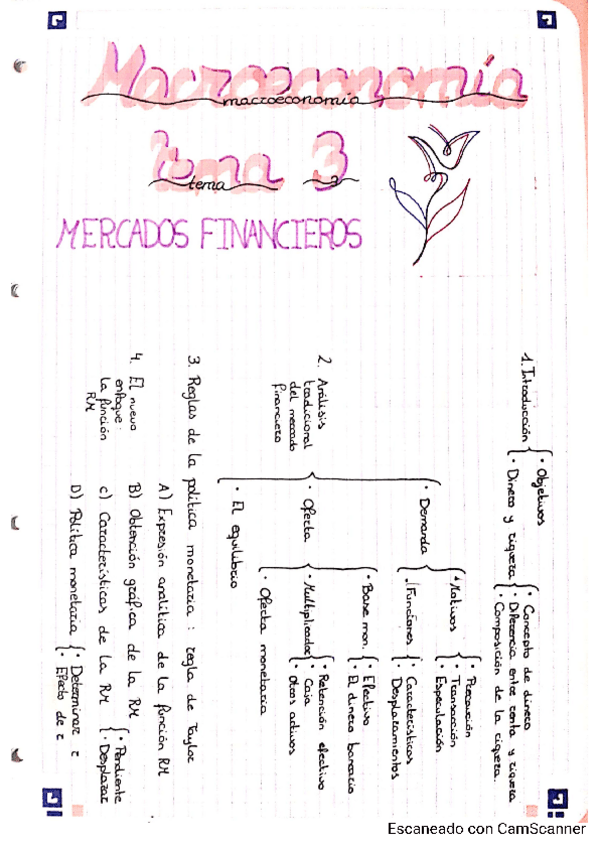 Macroeconomía
macroeconomía
Tema 3
tema 3
MERCADOS FINANCIEROS
1. Introducción
• Objetivos
• Dinero y riqueza
• Concepto de dinero
• Diferencia entre renta y riqueza
• Composición de la riqueza.
2. Análisis
tradicional
del mercado
financiero
• Demanda
• Motivos
• Precaución
• Transacción
• Especulación
• Funciones
• Características
• Desplazamientos
• Oferta
• Base mon.
• Efectivo
• El dinero bancario
• Multiplicador
• Retención efectivo
• Caja
• Otros activos
• Oferta monetaria
• El equilibrio
3. Reglas de la política monetaria : regla de Taylor
4. El nuevo
enfoque:
la función
RM
A) Expresión analítica de la función RM
B) Obtención gráfica de la RM
C) Características de la RM
• Pendiente
• Desplazar
D) Política monetaria
• Determinar r
• Efecto de r
Escaneado con CamScanner